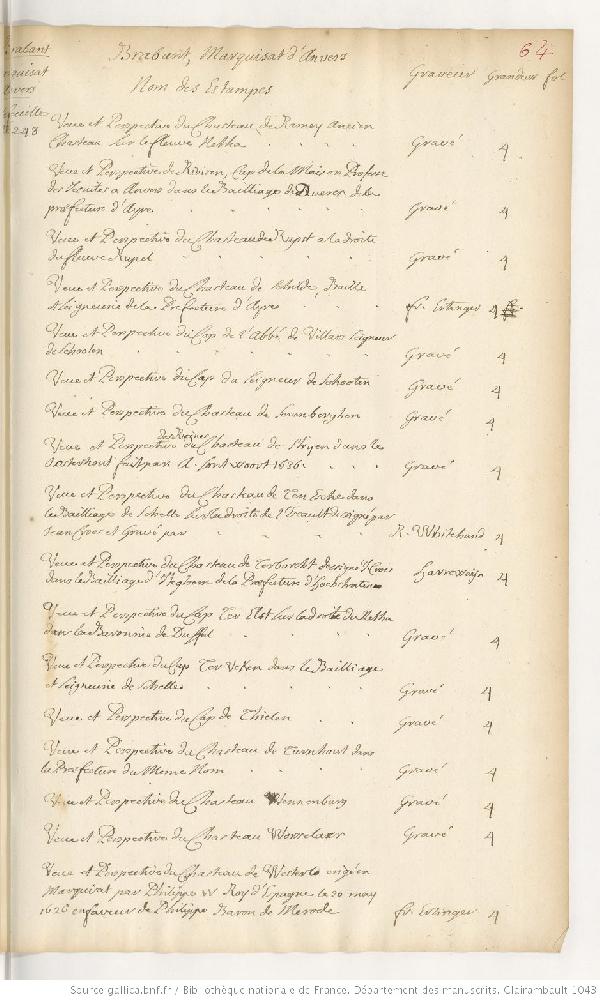 Brabant
Marquisat
d'Anvers
248
64
Brabant, Marquisat d'Anvers
Nom des Estampes
Graveur Grandeur fol
Veue et Perspective du Chasteau de Ramey Ancien
Chasteau sur le fleuve Netha Gravé 4
Veue et Perspective de Rivieren, Cap de la Maison Professe
des Jesuites a Anvers dans le Bailliage de de la
prefecture d'Ayen Gravé 4
Veue et Perspective du Chasteau de Rupst a la droite
du fleuve Rupel Gravé 4
Veue et Perspective du Chasteau de
et Seigneurie de la Prefecture d' fr. Ertinger 4
Veue et Perspective du Cap de l'Abbé de Villars Seigneur
de Schooten Gravé 4
Veue et Perspective du Cap du Seigneur de Schooten Gravé 4
Veue et Perspective du Chasteau de Gravé 4
des Ruines
Veue et Perspective du Chasteau de Stryen dans le
Oosterhout fait par A. Santwoort 1686 Gravé 4
Veue et Perspective du Chasteau de Ten Eeke dans
le Bailliage de Schelle sur la droite de l'Escault designé par
Jean Croes et Gravé par R. Whitehand 4
Veue et Perspective du Chasteau de designé J. Croes
dans le Bailliage d' de la Prefecture d'Hochstraten Harrewijn 4
Veue et Perspective du Cap Ter Elst sur la droite du Netha
dans la Baronnie de Duffel Gravé 4
Veue et Perspective du Cap Ter Veken dans le Bailliage
et Seigneurie de Schelle Gravé 4
Veue et Perspective du Cap de Thielen Gravé 4
Veue et Perspective du Chasteau de Turnhout dans
la Prefecture du Meme Nom Gravé 4
Veue et Perspective du Chasteau Gravé 4
Veue et Perspective du Chasteau Wesselaer Gravé 4
Veue et Perspective du Chasteau de Westerlo erigé en
Marquisat par Philippe IV Roy d'Espagne le 20 may
1626 en faveur de Philippe Baron de Merode fr. Ertinger 4
Source gallica.bnf.fr / Bibliothèque nationale de France. Département des manuscrits. Clairambault 1043